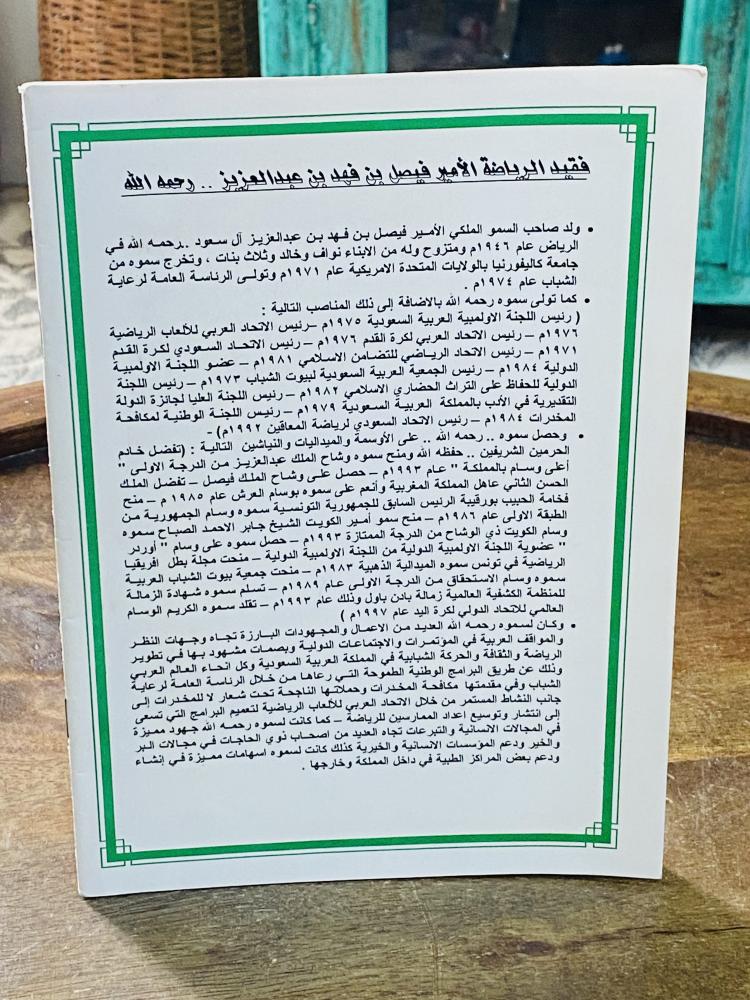 فقيد الرياضة الأمير فيصل بن فهد بن عبدالعزيز .. رحمه الله
• ولد صاحب السمو الملكي الأمير فيصل بن فهد بن عبدالعزيز آل سعود ..رحمه الله في
الرياض عام ١٩٤٦م ومتزوج وله من الابناء نواف وخالد وثلاث بنات ، وتخرج سموه من
جامعة كاليفورنيا بالولايات المتحدة الامريكية عام ١٩٧١م وتولى الرئاسة العامة لرعاية
الشباب عام ١٩٧٤م .
• كما تولى سموه رحمه الله بالاضافة إلى ذلك المناصب التالية :
( رئيس اللجنة الاولمبية العربية السعودية ١٩٧٥م –رئيس الاتحاد العربي للألعاب الرياضية
١٩٧٦م – رئيس الاتحاد العربي لكرة القدم ١٩٧٦م – رئيس الاتحاد السعودي لكرة القدم
١٩٧١م – رئيس الاتحاد الرياضي للتضامن الاسلامي ١٩٨١م – عضو اللجنة الاولمبية
الدولية ١٩٨٤م – رئيس الجمعية العربية السعودية لبيوت الشباب ١٩٧٣م – رئيس اللجنة
الدولية للحفاظ على التراث الحضاري الاسلامي ١٩٨٢م – رئيس اللجنة العليا لجائزة الدولة
التقديرية في الأدب بالمملكة العربية السعودية ١٩٧٩م – رئيس اللجنة الوطنية لمكافحة
المخدرات ١٩٨٤م – رئيس الاتحاد السعودي لرياضة المعاقين ١٩٩٢م) –
• وحصل سموه .. رحمه الله .. على الأوسمة والميداليات والنياشين التالية : (تفضل خادم
الحرمين الشريفين .. حفظه الله ومنح سموه وشاح الملك عبدالعزيز من الدرجة الاولى "
أعلى وسام بالمملكة " عام ١٩٩٣م – حصل على وشاح الملك فيصل – تفضل الملك
الحسن الثاني عاهل المملكة المغربية وأنعم على سموه بوسام العرش عام ١٩٨٥ م – منح
فخامة الحبيب بورقيبة الرئيس السابق للجمهورية التونسية سموه وسام الجمهورية من
الطبقة الاولى عام ١٩٨٦م – منح سمو أمير الكويت الشيخ جابر الاحمد الصباح سموه
وسام الكويت ذي الوشاح من الدرجة الممتازة ١٩٩٣م – حصل سموه على وسام " أوردر
" عضوية اللجنة الاولمبية الدولية من اللجنة الاولمبية الدولية – منحت مجلة بطل افريقيا
الرياضية في تونس سموه الميدالية الذهبية ١٩٨٣م – منحت جمعية بيوت الشباب العربية
سموه وسام الاستحقاق من الدرجة الاولى عام ١٩٨٩م – تسلم سموه شهادة الزمالة
للمنظمة الكشفية العالمية زمالة بادن باول وذلك عام ١٩٩٣م – تقلد سموه الكريم الوسام
العالمي للاتحاد الدولي لكرة اليد عام ١٩٩٧م )
• وكان لسموه رحمه الله العديد من الاعمال والمجهودات البارزة تجاه وجهات النظر
والمواقف العربية في المؤتمرات والاجتماعات الدولية وبصمات مشهود بها في تطوير
الرياضة والثقافة والحركة الشبابية في المملكة العربية السعودية وكل انحاء العالم العربي
وذلك عن طريق البرامج الوطنية الطموحة التي رعاها من خلال الرئاسة العامة لرعاية
الشباب وفي مقدمتها مكافحة المخدرات وحملاتها الناجحة تحت شعار لا للمخدرات إلى
جانب النشاط المستمر من خلال الاتحاد العربي للألعاب الرياضية لتعميم البرامج التي تسعى
إلى انتشار وتوسيع اعداد الممارسين للرياضة – كما كانت لسموه رحمه الله جهود مميزة
في المجالات الانسانية والتبرعات تجاه العديد من اصحاب ذوي الحاجات في مجالات البر
والخير ودعم المؤسسات الانسانية والخيرية كذلك كانت لسموه اسهامات مميزة في إنشاء
ودعم بعض المراكز الطبية في داخل المملكة وخارجها .